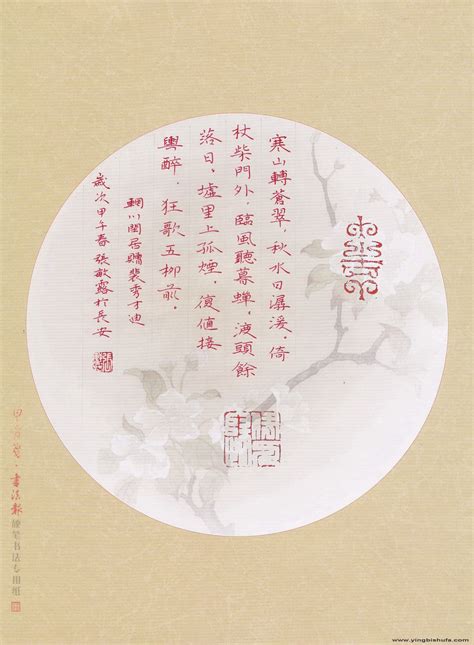 寒山轉蒼翠，秋水日潺湲，倚
杖柴門外，臨風聽暮蟬，渡頭餘
落日，墟里上孤煙，復值接
輿醉，狂歌五柳前。
輞川閒居贈裴秀才迪
歲次甲午春張敏露於長安
書法報
硬笔书法专用纸
www.yingbishufa.com